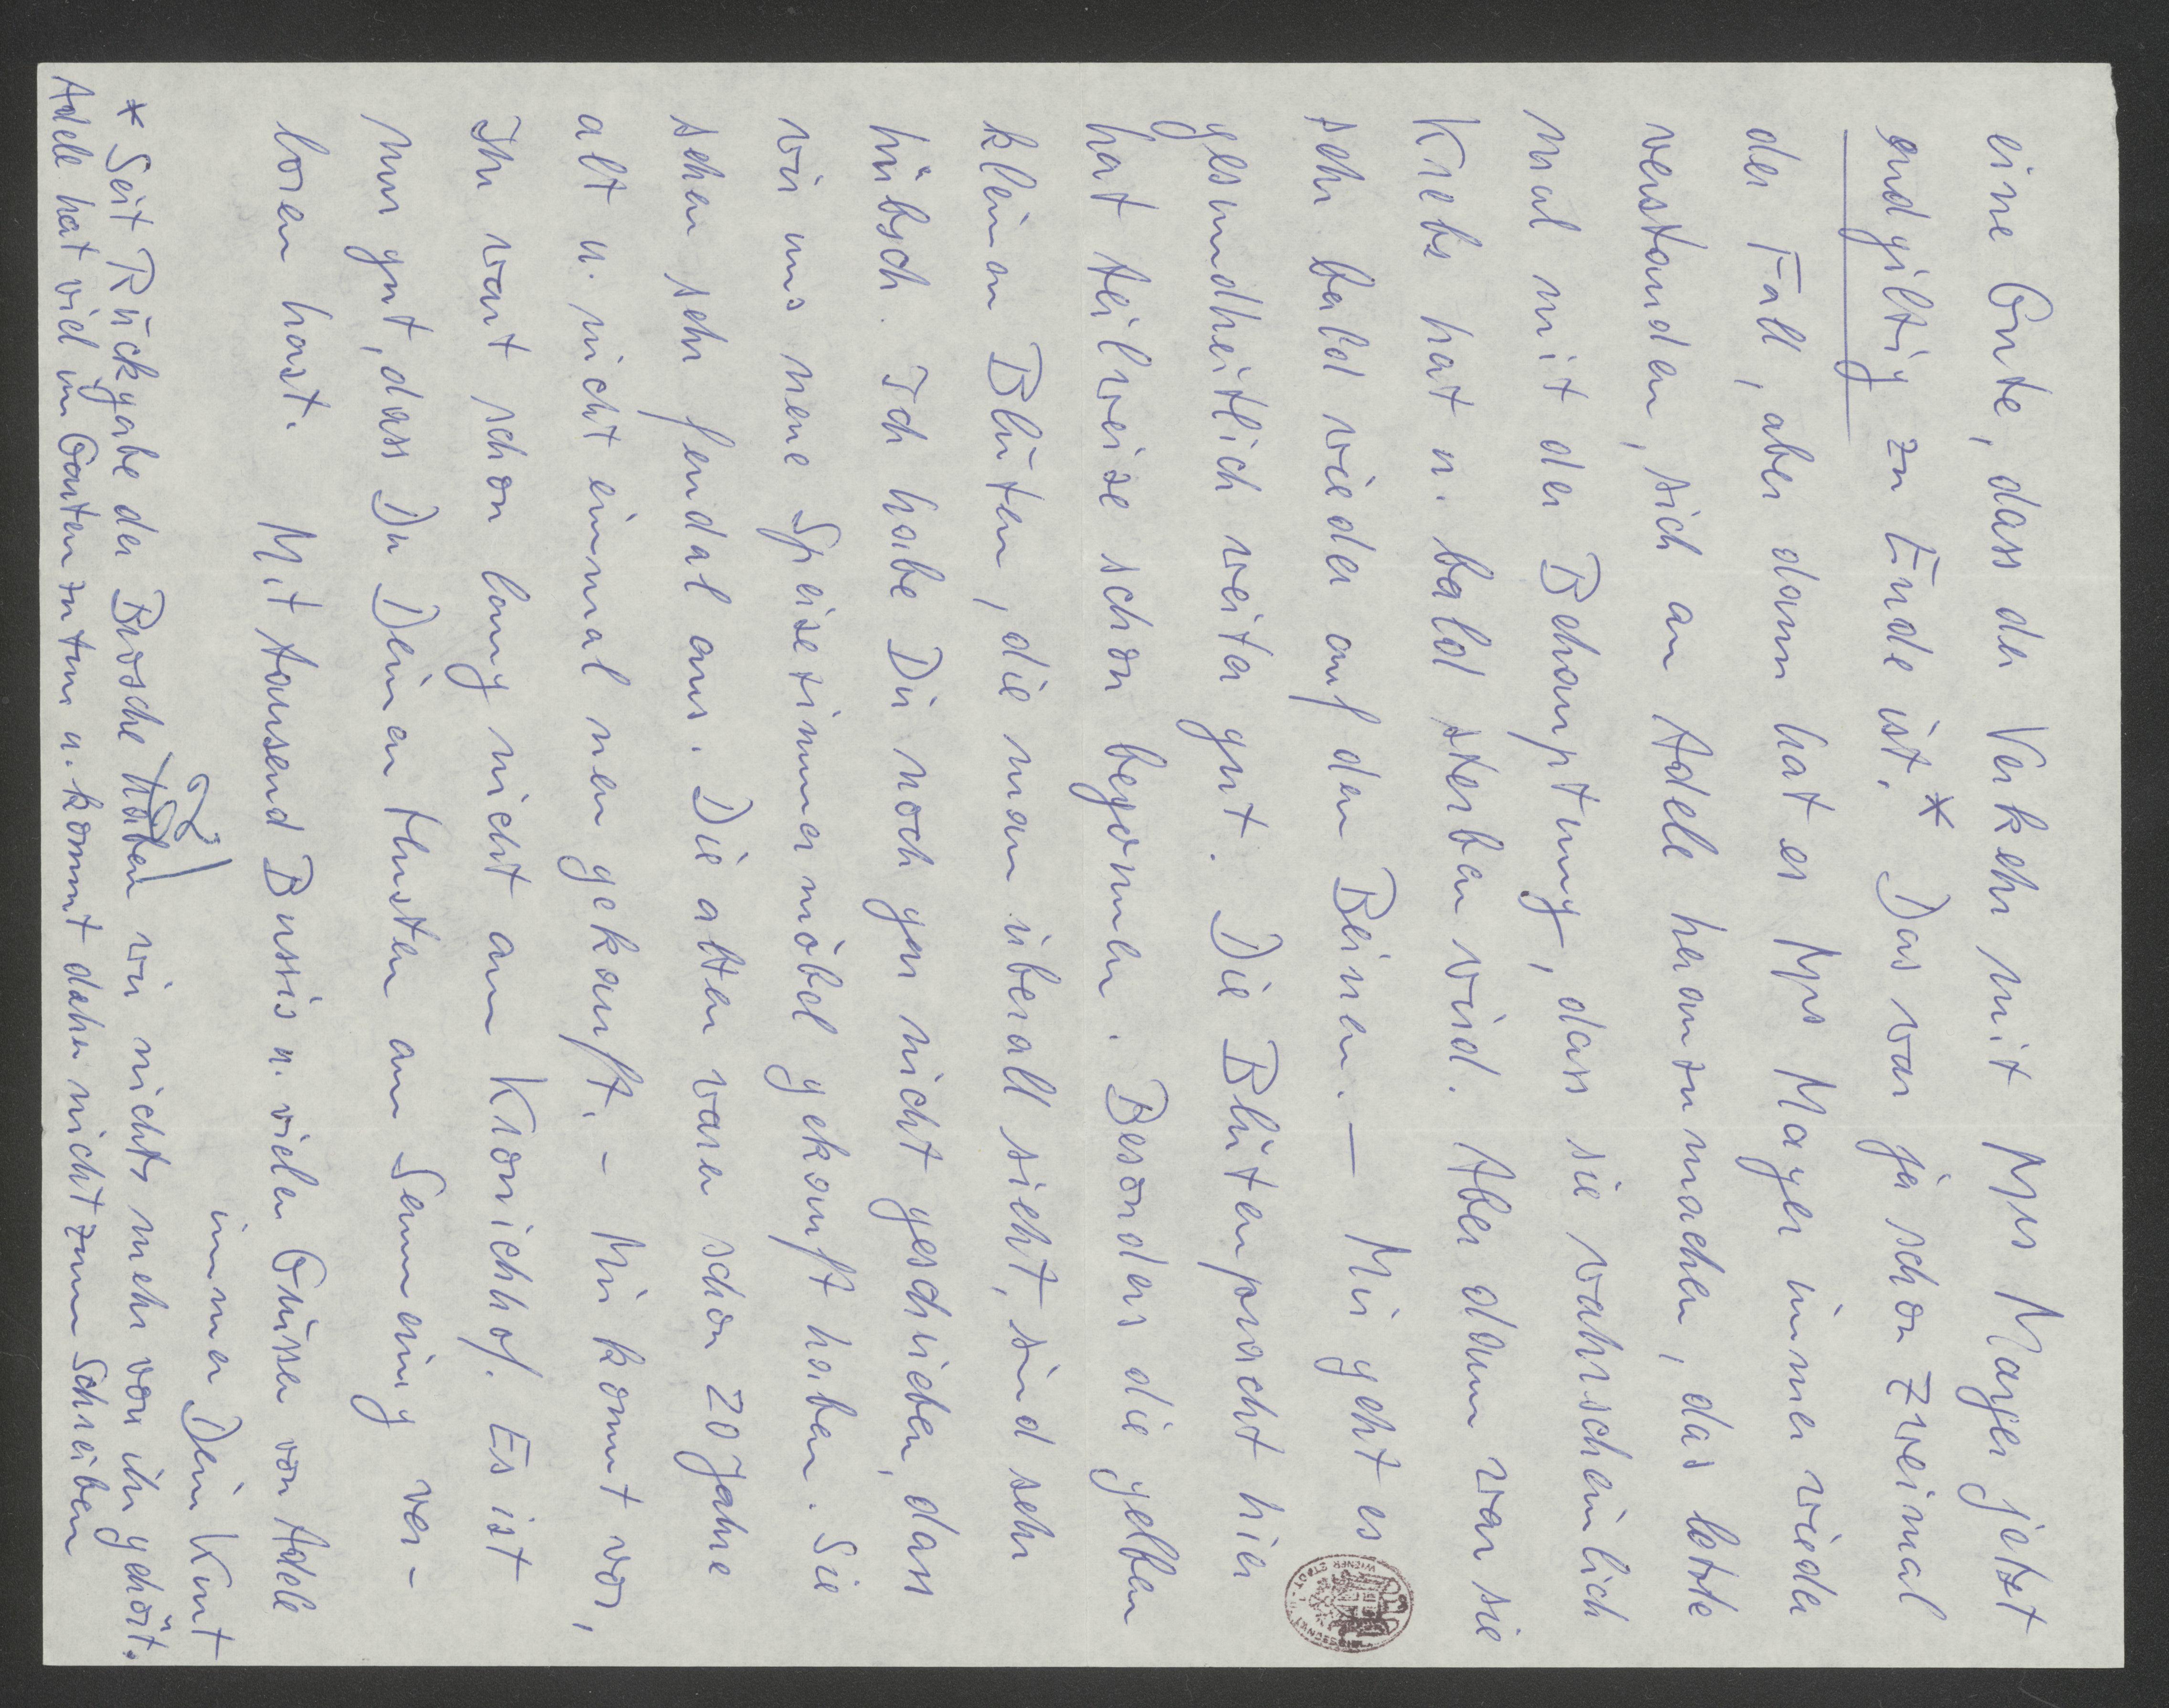 eine Gute, dass der Verkehr mit Mrs Mayer jetzt
endgiltig zu Ende ist.* Das war ja schon zweimal
der Fall, aber dann hat es Mrs Mayer immer wieder
verstanden, sich an Adele heranzumachen, das letzte
mal mit der Behauptung, dass sie wahrscheinlich
Krebs hat u. bald sterben wird. Aber dann war sie
sehr bald wieder auf den Beinen. — Mir geht es
gesundheitlich weiter gut. Die Blütenpracht hier
hat teilweise schon begonnen. Besonders die gelben
kleinen Blüten, die man überall sieht, sind sehr
hübsch. Ich habe Dir noch gar nicht geschrieben, dass
wir uns neue Speisezimmermöbel gekauft haben. Sie
sehen sehr feudal aus. Die alten waren schon 20 Jahre
alt u. nicht einmal neu gekauft. – Mir kommt vor,
Ihr wart schon lang nicht am Kronichhof. Es ist
nur gut, dass Du Deinen Husten am Semmering ver-
loren hast. Mit tausend Bussis u. vielen Grüssen von Adele
immer Dein Kurt
* Seit Rückgabe der Brosche haben wir nichts mehr von ihr gehört.
Adele hat viel im Garten zu tun u. kommt daher nicht zum Schreiben
WIENER STADT-